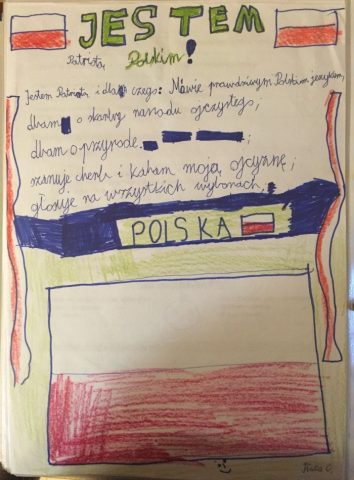 JESTEM
Patriotą Polskim!
Jestem Patriotą i dla czego: Mówie prawdziwym Polskim językiem,
dbam o skarby narodu ojczystego;
dbam o przyrode. ;
szanuje cheb i kaham moją ojczyznę;
głosuje na wszystkich wyborach.
POLSKA